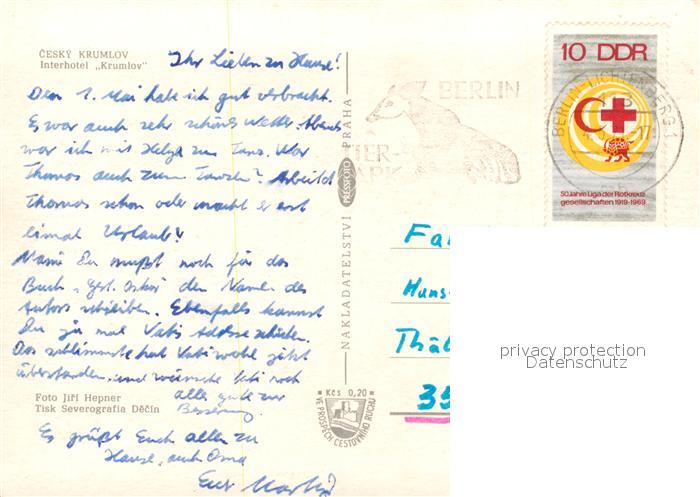 ČESKÝ KRUMLOV
Interhotel „Krumlov"
Ihr Lieben zu Hause!
Den 1. Mai habe ich gut verbracht.
Es war auch sehr schönes Wetter. Abends
war ich mit Helga zum Tanz. War
Thomas auch zum Tanzen? Arbeitet
Thomas schon oder macht er erst
einmal Urlaub?
Mami Du mußt noch für das
Buch den Namen des
Autors schreiben. Ebenfalls kannst
Du ja mal Vatis Adresse schreiben.
Das schlimmste hat Vati wohl jetzt
überstanden, und wünsche Vati noch
alles gute zur
Besserung
Es grüßt Euch allen zu
Hause, auch Oma
Euer
Foto Jiří Hepner
Tisk Severografia Děčín
NAKLADATELSTVÍ PRESSFOTO PRAHA
Kčs 0,20
VE PROSPĚCH CESTOVNÍHO RUCHU
BERLIN
TIER-
PARK
BERLIN-LICHTENBERG 1
10 DDR
50 Jahre Liga der Rotkreuz-
gesellschaften 1919-1969
Fa
Huns
Thäl
35
privacy protection
Datenschutz